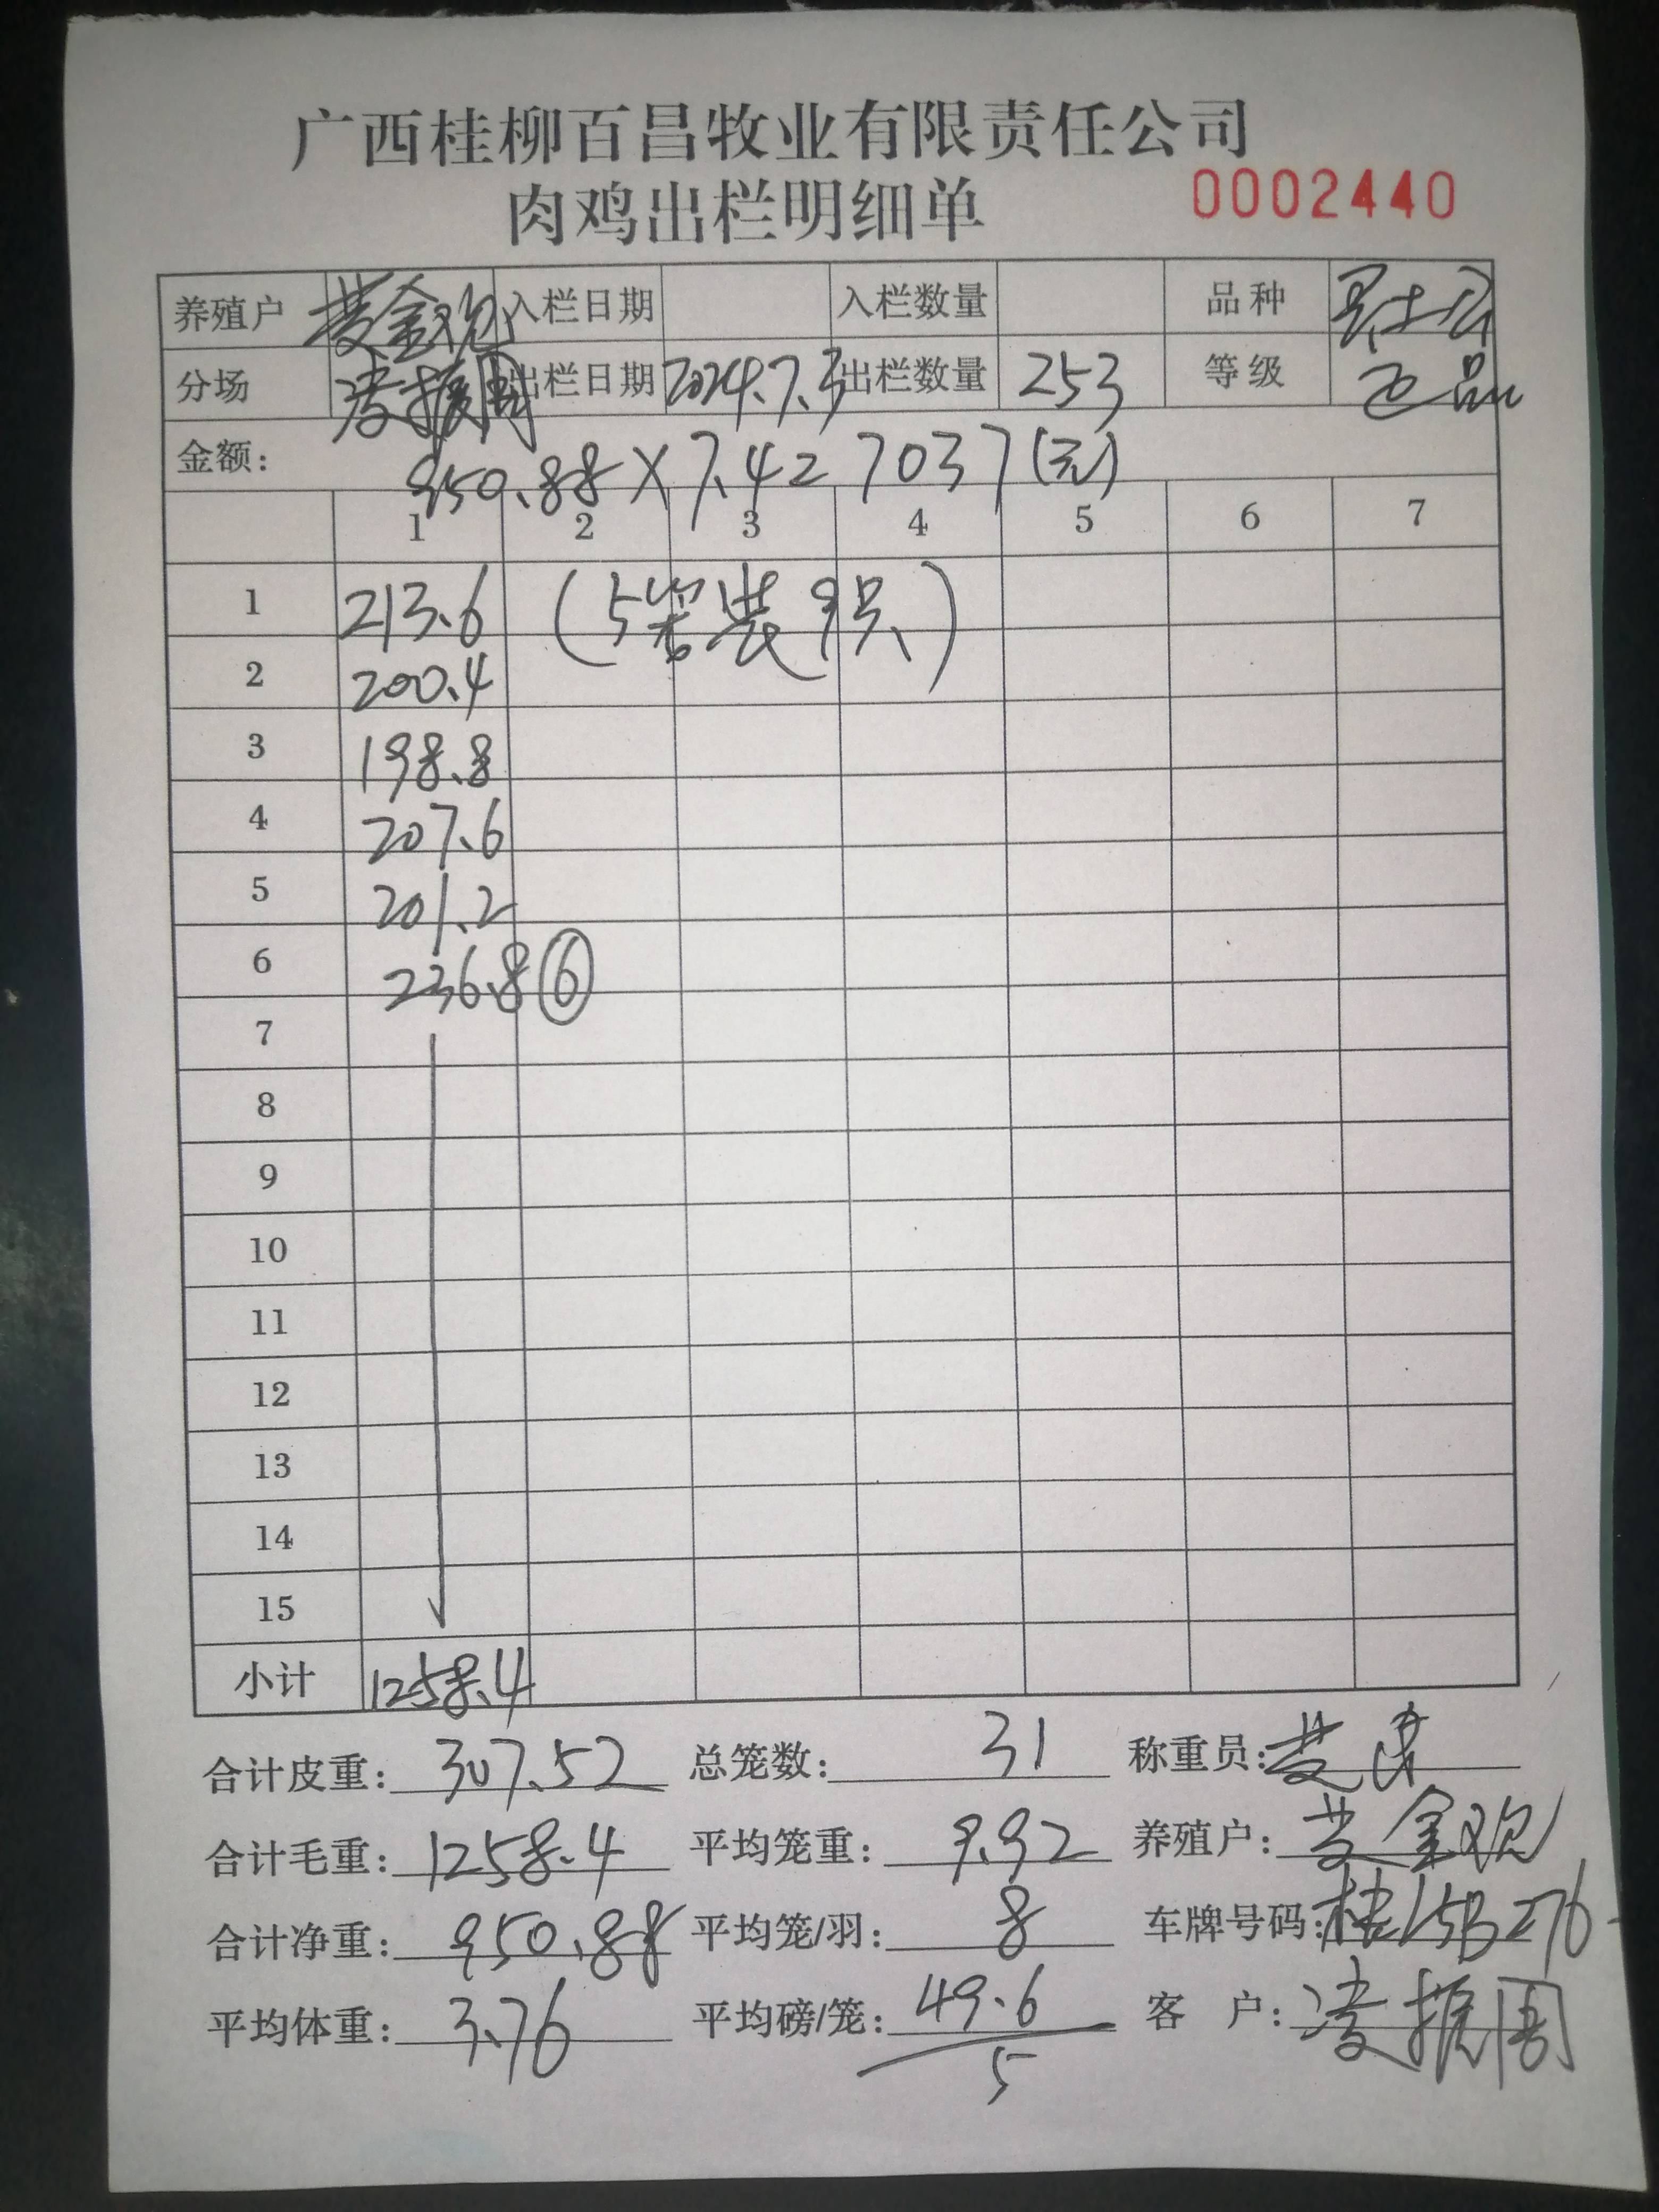 广西桂柳百昌牧业有限责任公司
肉鸡出栏明细单 0002440
养殖户 黄金欢 入栏日期 入栏数量 品种
分场 凌振周 出栏日期 2024.7.3 出栏数量 253 等级 正品
金额: 950.88×7.4= 7037(元)
1 2 3 4 5 6 7
1 213.6 (5笼装 9只)
2 200.4
3 198.8
4 207.6
5 201.2
6 236.8 ⑥
7
8
9
10
11
12
13
14
15
小计 1258.4
合计皮重: 307.52 总笼数: 31 称重员: 黄
合计毛重: 1258.4 平均笼重: 9.92 养殖户: 黄金欢
合计净重: 950.88 平均笼/羽: 8 车牌号码: 桂L5B276
平均体重: 3.76 平均磅/笼: 49.6 客 户: 凌振周
5